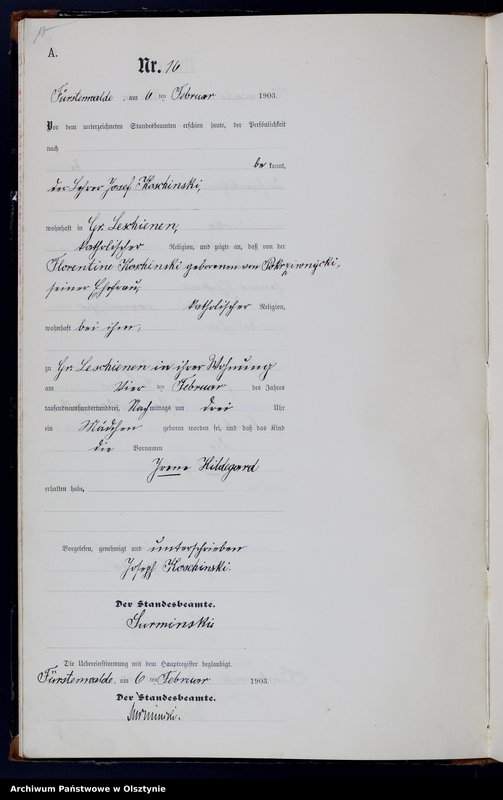 A.
Nr. 16
Fürstenwalde, am 6 ten Februar 1903.
Vor dem unterzeichneten Standesbeamten erschien heute, der Persönlichkeit
nach
be kannt,
der Lehrer Josef Koschinski,
wohnhaft in Gr. Leschienen,
katholischer Religion, und zeigte an, daß von der
Florentine Koschinski geborenen von
seiner Ehefrau,
katholischer Religion,
wohnhaft bei ihm,
zu Gr. Leschienen in ihrer Wohnung
am vier ten Februar des Jahres
tausendneunhundertunddrei, Nachmittags um drei Uhr
ein Mädchen geboren worden sei, und daß das Kind
die Vornamen
Irene Hildegard
erhalten habe.
Vorgelesen, genehmigt und unterschrieben
Joseph Koschinski.
Der Standesbeamte.
Surminski
Die Uebereinstimmung mit dem Hauptregister beglaubigt.
Fürstenwalde, am 6 ten Februar 1903.
Der Standesbeamte.
Surminski.
Archiwum Państwowe w Olsztynie